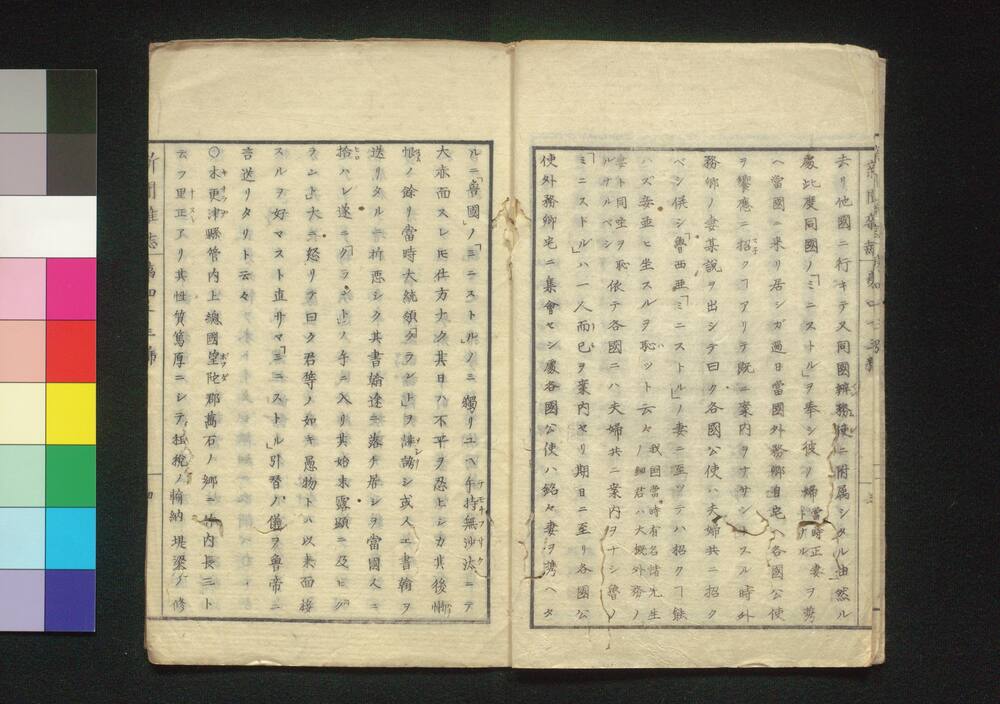 去リ他國ニ行キテ又同國辨務使ニ附属シタル由然ル
處此度同國ノ「ミニストル」ヲ奉シ彼リ婦當時正妻トナルヲ携
ヘ當國ニ来リ居シガ過日當國外務卿自宅ヘ各國公使
ヲ饗應ニ招クアリテ既ニ案内ヲナサントスル時外
務卿ノ妻某説ヲ出シテ曰ク各國公使ハ夫婦共ニ招ク
ベシ併シ「魯西亜」「ミニストル」ノ妻ニ至ツテハ招ク能
ハズ妾並ヒ坐スルヲ恥ツト云々我国當時有名諸先生ノ細君ハ大概外務ノ
妻ト同坐ヲ恥依テ各國ニハ夫婦共ニ案内ヲナシ魯ノ
ルナルベシ
「ミニストル」ハ一人而已ヲ案内セリ期日ニ至リ各國公
使外務卿宅ニ集會セシ處各國公使ハ銘々妻ヲ携ヘタ
ルニ「魯國」ノ「ミニストル」ノミ獨リユヘ手持無沙汰ニテ
大赤面スレ圧仕方ナク其日ハ不平ヲ忍ヒシカ其後慚
恨ノ餘リ當時大統領「グラント」ヲ誹謗シ或人エ書翰ヲ
送リタルニ折悪シク其書翰途ニ落チ居シヲ當國人ニ
拾ハレ遂ニ「グラント」ノ手ニ入リ其始末露顕ニ及ヒ「グ
ラント」大ニ怒リテ曰ク君等ノ如キ愚物トハ以来面接
スルヲ好マスト直サマ「ミニストル」引替ノ儀ヲ魯帝ニ
吉送リタリト云々
〇木更津縣管内上總國望陀郡萬石ノ郷ニ竹内長三ト
云フ里正アリ其性質篤厚ニシテ租税ノ輸納堤梁ノ修
新聞雑誌 第四十三号 四